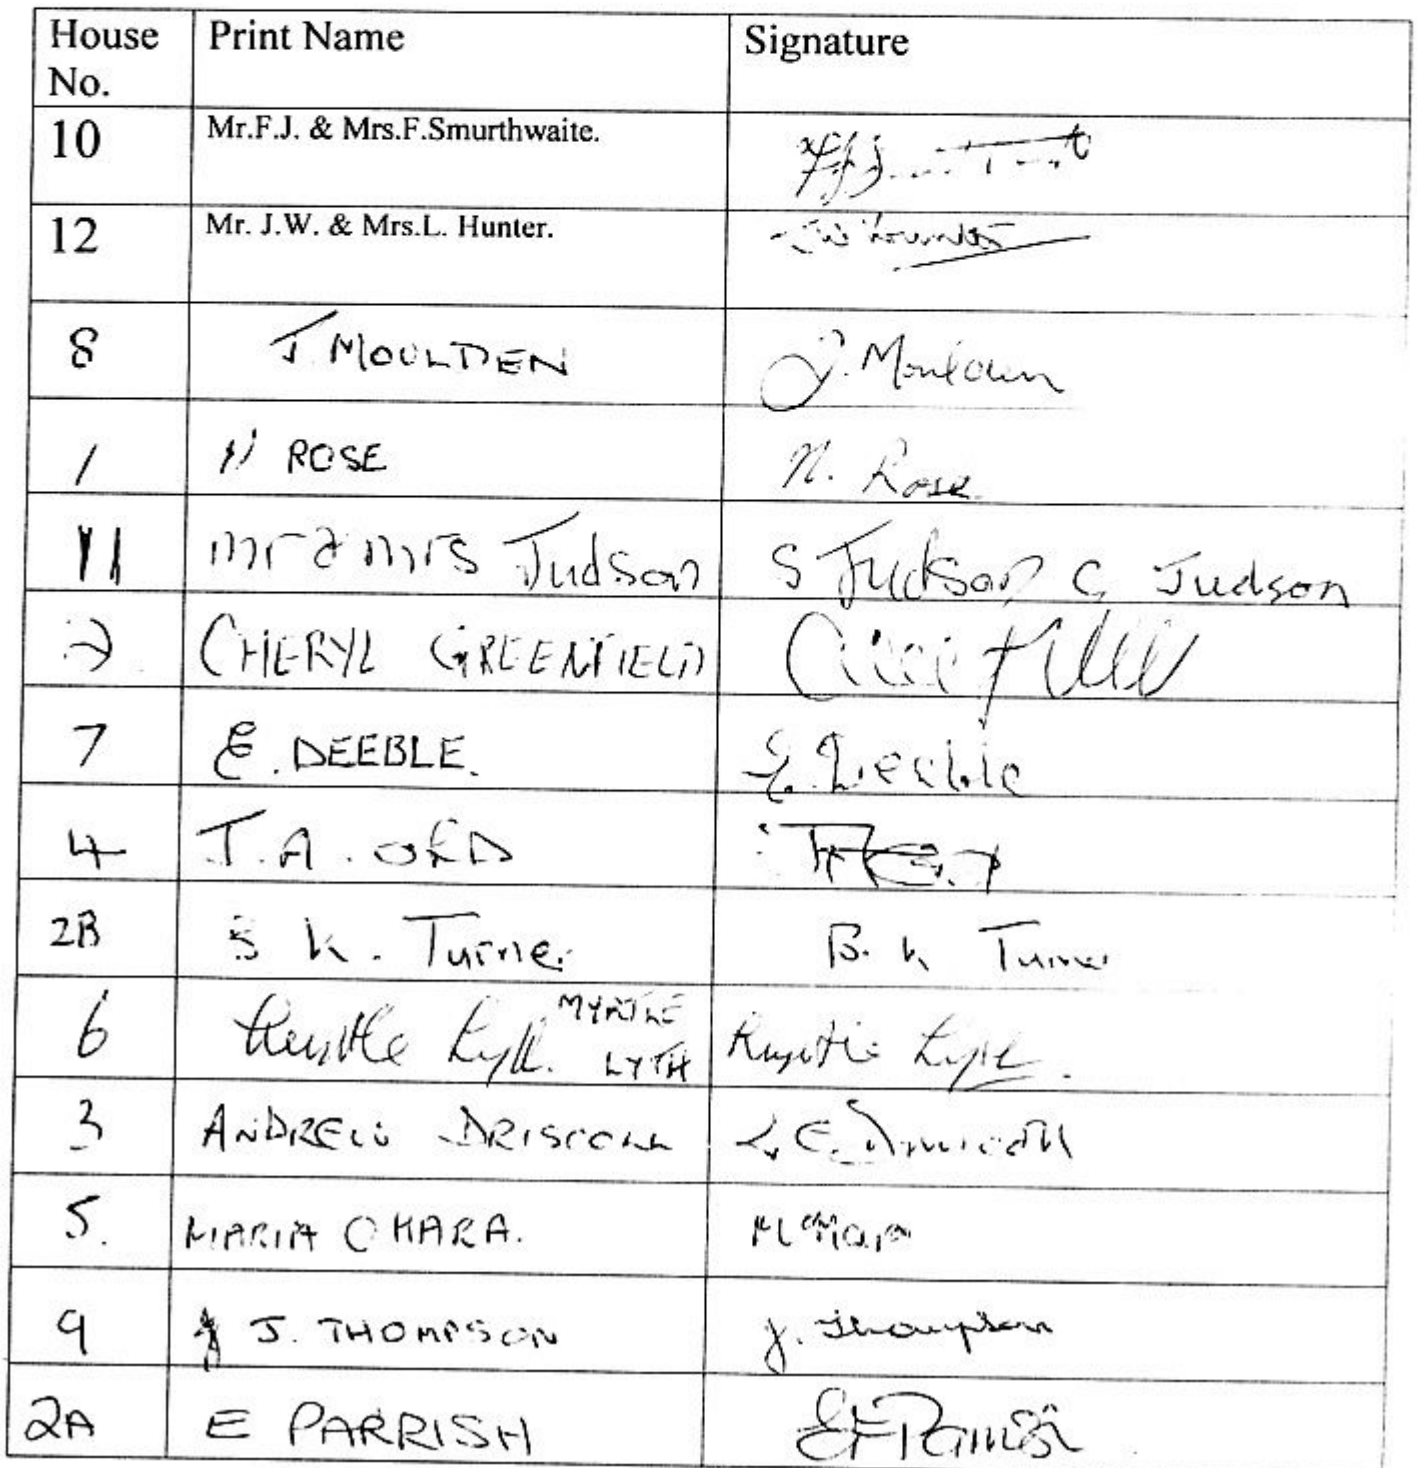 House No. Print Name Signature
10 Mr.F.J. & Mrs.F.Smurthwaite.
12 Mr. J.W. & Mrs.L. Hunter. J W Hunter
8 J. MOULDEN J. Moulden
1 N ROSE N. Rose
11 Mr & Mrs Judson S Judson C Judson
2 CHERYL GREENFIELD
7 E. DEEBLE. E. Deeble
4 J.A. ORD
2B B K. Turner B. K Turner
6 Myrtle Lyth. MYRTLE LYTH Myrtle Lyth.
3 ANDREW DRISCOLL Driscoll
5. MARIA O HARA. M O'Hara
9 J. THOMPSON J. Thompson
2A E PARRISH E Parrish